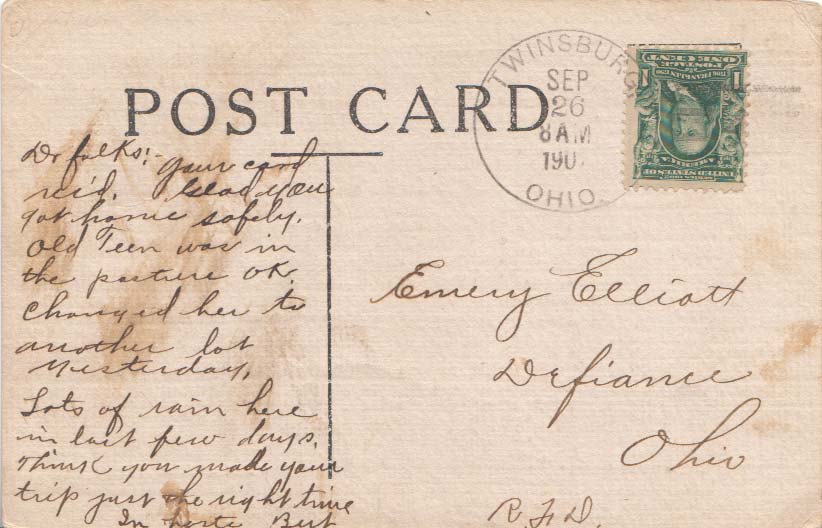 POST CARD
TWINSBURG
SEP
26
8 AM
190
OHIO.
1 1
ONE CENT
POSTAGE
UNITED STATES OF
AMERICA
Dr folks:- your card
rec'd. Glad you
got home safely.
Old Teen was in
the pasture OK.
Changed her to
another lot
yesterday.
Lots of rain here
in last few days.
Think you made your
trip just the right time
In haste Bert
Emery Elliott
Defiance
Ohio
R.F.D.